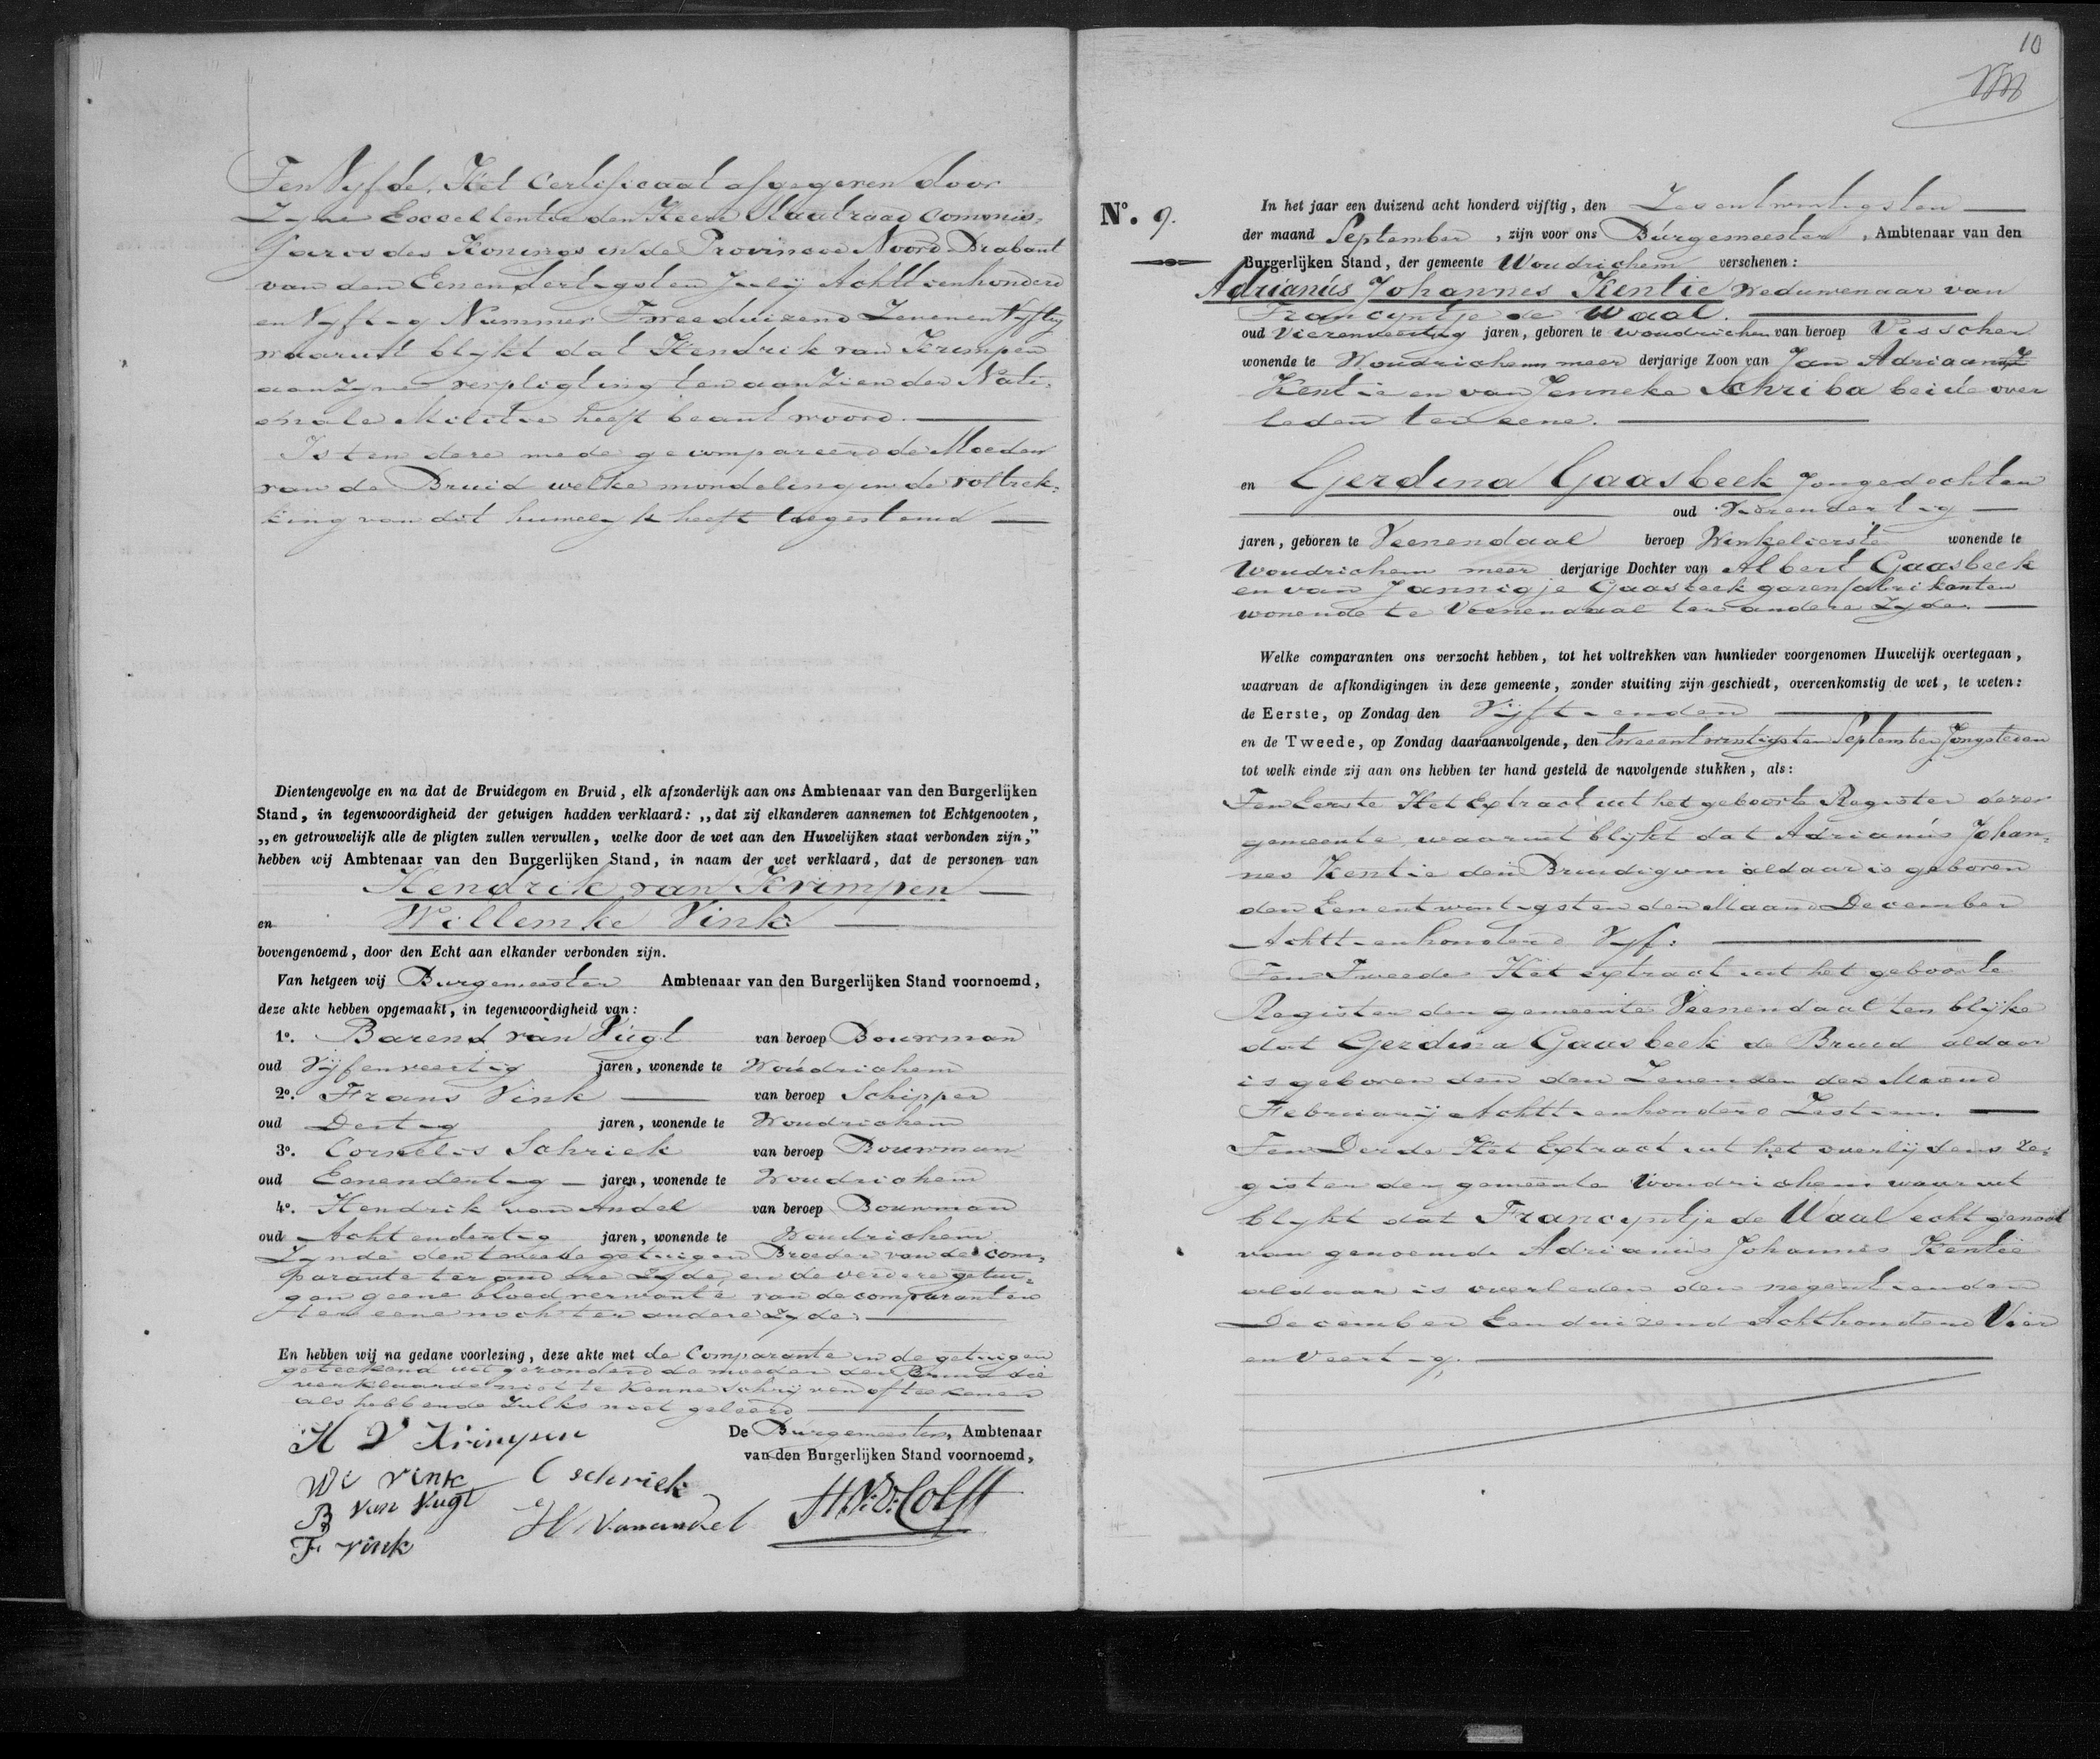 Ten Vyfde. Het Certificaat afgegeven door
Zyne Excellentie den Heere Staatraad Commis=
Saris des Konings in de Provincie Noord Brabant
van den Eenendertigsten July Achttienhonderd
en Vyftig Nummer Tweeduizend Zevenen Vyftig
waaruit blykt dat Hendrik van Krimpen
aan Zyne verpligting ten aanzien der Nati=
onale Militie heeft beantwoord.
Is ten deze mede gecompareerd de Moeder
van de Bruid welke mondeling in de voltrek=
king van dit huwelyk heeft toegestemd
Dientengevolge en na dat de Bruidegom en Bruid, elk afzonderlijk aan ons Ambtenaar van den Burgerlijken
Stand, in tegenwoordigheid der getuigen hadden verklaard: „dat zij elkanderen aannemen tot Echtgenooten,
„en getrouwelijk alle de pligten zullen vervullen, welke door de wet aan den Huwelijken staat verbonden zijn,”
hebben wij Ambtenaar van den Burgerlijken Stand, in naam der wet verklaard, dat de personen van
Hendrik van Krimpen
en Willemke Vink
bovengenoemd, door den Echt aan elkander verbonden zijn.
Van hetgeen wij Burgemeester Ambtenaar van den Burgerlijken Stand voornoemd,
deze akte hebben opgemaakt, in tegenwoordigheid van:
1o. Barend van Vugt van beroep Bouwman
oud Vijfenveertig jaren, wonende te Woudrichem
2o. Frans Vink van beroep Schipper
oud Dertig jaren, wonende te Woudrichem
3o. Cornelis Schriek van beroep Bouwman
oud Eenendertig jaren, wonende te Woudrichem
4o. Hendrik van Andel van beroep Bouwman
oud Achtendertig jaren, wonende te Woudrichem
Zynde den tweede getuigen Broeder van de com=
parante ter andere Zyde, en de verdere getui=
gen geene bloedverwante van de comparanten
ter eene noch ter andere zyde.
En hebben wij na gedane voorlezing, deze akte met de Comparante en de getuigen
geteekend uitgezonderd de moeder der Bruid die
verklaarde niet te kenne Schryven of teekenen
als hebbende Zulks niet geleerd
H V Krimpen
De Burgemeester, Ambtenaar
van den Burgerlijken Stand voornoemd,
W vink C schriek
B van Vugt
H Vanandel
F. vink
10
No. 9.
In het jaar een duizend acht honderd vijftig, den Zesentwintigsten
der maand September, zijn voor ons Burgemeester, Ambtenaar van den
Burgerlijken Stand, der gemeente Woudrichem verschenen:
Adrianus Johannes Kentie Weduwenaar van
Francyntje de Waal.
oud Vierenveertig jaren, geboren te Woudrichem van beroep Visscher
wonende te Woudrichem meer derjarige Zoon van Jan Adriaansz
Kentie en van Jenneke Schriba beide over
leden ter eene.
en Gerdina Gaasbeek Jongedochter
oud Vierendertig
jaren, geboren te Veenendaal beroep Winkelierste wonende te
Woudrichem meer derjarige Dochter van Albert Gaasbeek
en van Jannigje Gaasbeek garenfabrikanten
wonende te Veenendaal ter andere Zyde.
Welke comparanten ons verzocht hebben, tot het voltrekken van hunlieder voorgenomen Huwelijk overtegaan,
waarvan de afkondigingen in deze gemeente, zonder stuiting zijn geschiedt, overeenkomstig de wet, te weten:
de Eerste, op Zondag den Vijftienden
en de Tweede, op Zondag daaraanvolgende, den tweeentwintigsten September Jongsleden
tot welk einde zij aan ons hebben ter hand gesteld de navolgende stukken, als:
Ten Eerste Het Extract uit het geboorte Register dezer
gemeente, waaruit blijkt dat Adrianus Johan=
nes Kentie den Bruidigom aldaar is geboren
den Eenentwintigsten der Maand December
Achttienhonderd Vyf.
Ten Tweede Het extract uit het geboorte
Register der gemeente Veenendaal ten blijke
dat Gerdina Gaasbeek de Bruid aldaar
is geboren den den Zevenden der Maand
February Achttienhonderd Zestien.
Ten Derde Het Extract uit het overlijdens re=
gister der gemeente Woudrichem waaruit
blykt dat Francyntje de Waal echtgenoot
van genoemde Adrianus Johannes Kentie
aldaar is overleden den negentienden
December Een duizend Achthonderd Vier
en Veertig.